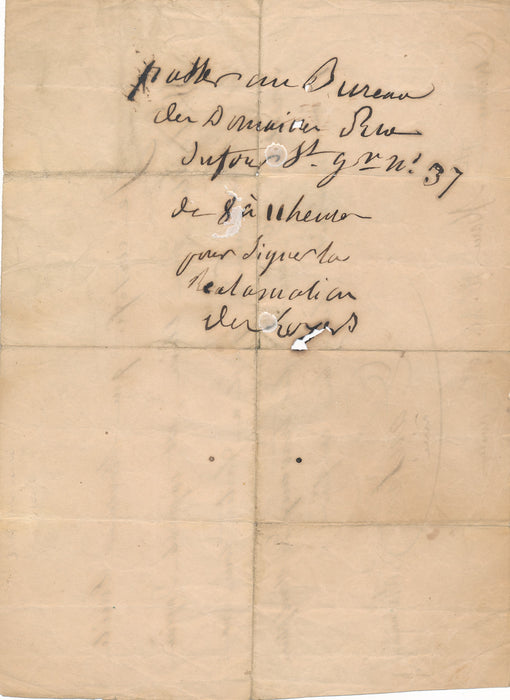 passer au Bureau
des Domaines Rue
Dufour St. gn n° 37
de 8 à 11 heures
pour signer la
Reclamation
des Loyers